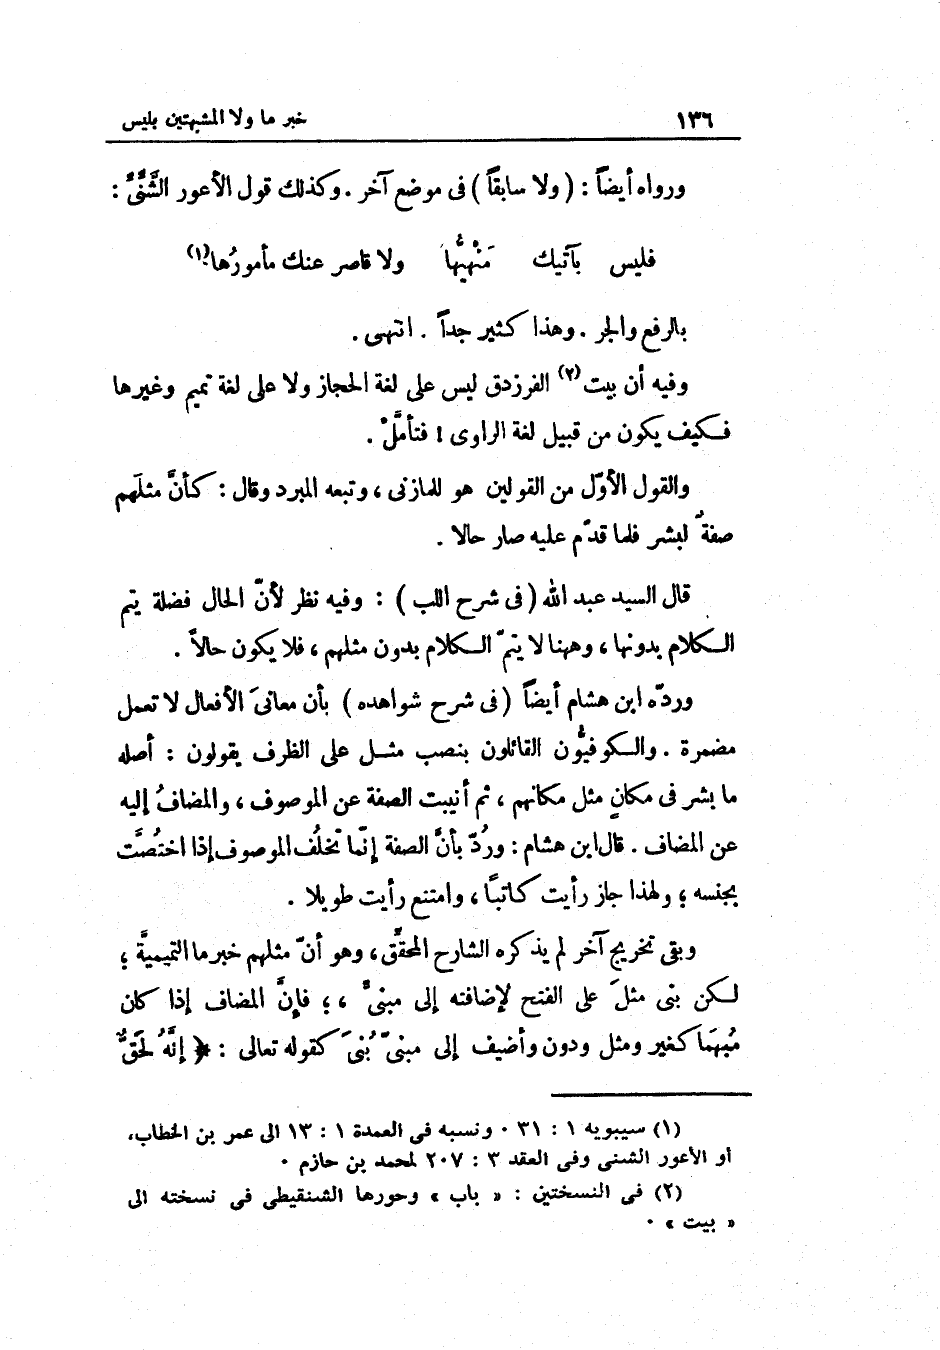 ١٣٦ خبر ما ولا المشبهتين بليس
ورواه أيضاً : ( ولا سابقاً ) فى موضع آخر . وكذلك قول الأعور الشَّنِّىِّ :
فليس بآتيك مَنْهِيُّها ولا قاصر عنك مأمورُها (١)
بالرفع والجر . وهذا كثير جداً . انتهى .
وفيه أن بيت (٢) الفرزدق ليس على لغة الحجاز ولا على لغة تميم وغيرها
فكيف يكون من قبيل لغة الراوى ! فتأملْ .
والقول الأوّل من القولين هو للمازنى ، وتبعه المبرد وقال : كأنَّ مثلَهم
صفةٌ لبشر فلما قدّم عليه صار حالا .
قال السيد عبد الله ( فى شرح اللب ) : وفيه نظر لأنّ الحال فضلة يتم
الكلام بدونها ، وههنا لا يتمّ الكلام بدون مثلهم ، فلا يكون حالاً .
وردّه ابن هشام أيضاً ( فى شرح شواهده ) بأن معانىَ الأفعال لا تعمل
مضمرة . والكوفيُّون القائلون بنصب مثل على الظرف يقولون : أصله
ما بشر فى مكانٍ مثل مكانهم ، ثم أنيبت الصفة عن الموصوف ، والمضافُ إليه
عن المضاف . قال ابن هشام : ورُدّ بأنَّ الصفة إنّما تخلُف الموصوف إذا اختُصَّت
بجنسه ؛ ولهذا جاز رأيت كاتباً ، وامتنع رأيت طويلا .
وبقى تخريج آخر لم يذكره الشارح المحقِّق ، وهو أنّ مثلهم خبر ما التميميَّة ؛
لكن بنى مثلَ على الفتح لإضافته إلى مبنىٍّ ، ؛ فإنَّ المضاف إذا كان
مُبهَما كغير ومثل ودون وأضيف إلى مبنىّ بُنىَ كقوله تعالى : ﴿ إنَّهُ لَحَقٌّ
(١) سيبويه ١ : ٣١ . ونسبه فى العمدة ١ : ١٣ الى عمر بن الخطاب،
أو الأعور الشنى وفى العقد ٣ : ٢٠٧ لمحمد بن حازم .
(٢) فى النسختين : « باب » وحورها الشنقيطى فى نسخته الى
« بيت » .